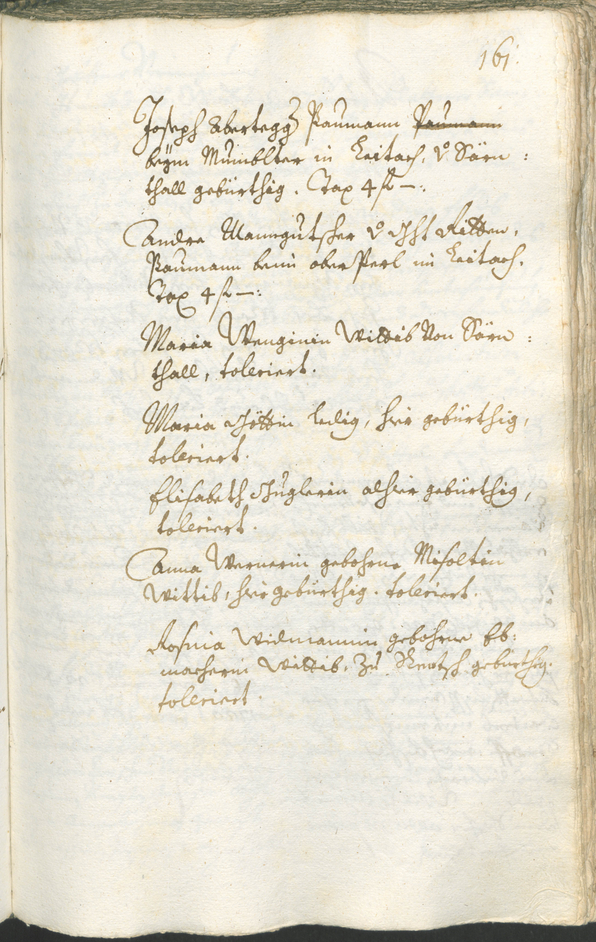 161.
Joseph Abertegg Paumann Paumann
beÿm Mumblter in Leitach, v Särn:
thall gebürthig. Tax 4 f —:
Andre Manngutscher v Ritten,
Paumann beim ober Perl in Leitach.
Tax 4 f —:
Maria Wenginin Wittib von Särn:
thall, toleriert.
Maria ledig, hie gebürthig,
toleriert.
Elisabeth alhier gebürthig,
toleriert.
Anna Wernerin gebohrne Misoltin
Wittib, hie gebürthig. toleriert.
Rosina Widmannin gebohrne Eb:
nacherin Wittib, zu gebürthig.
toleriert.